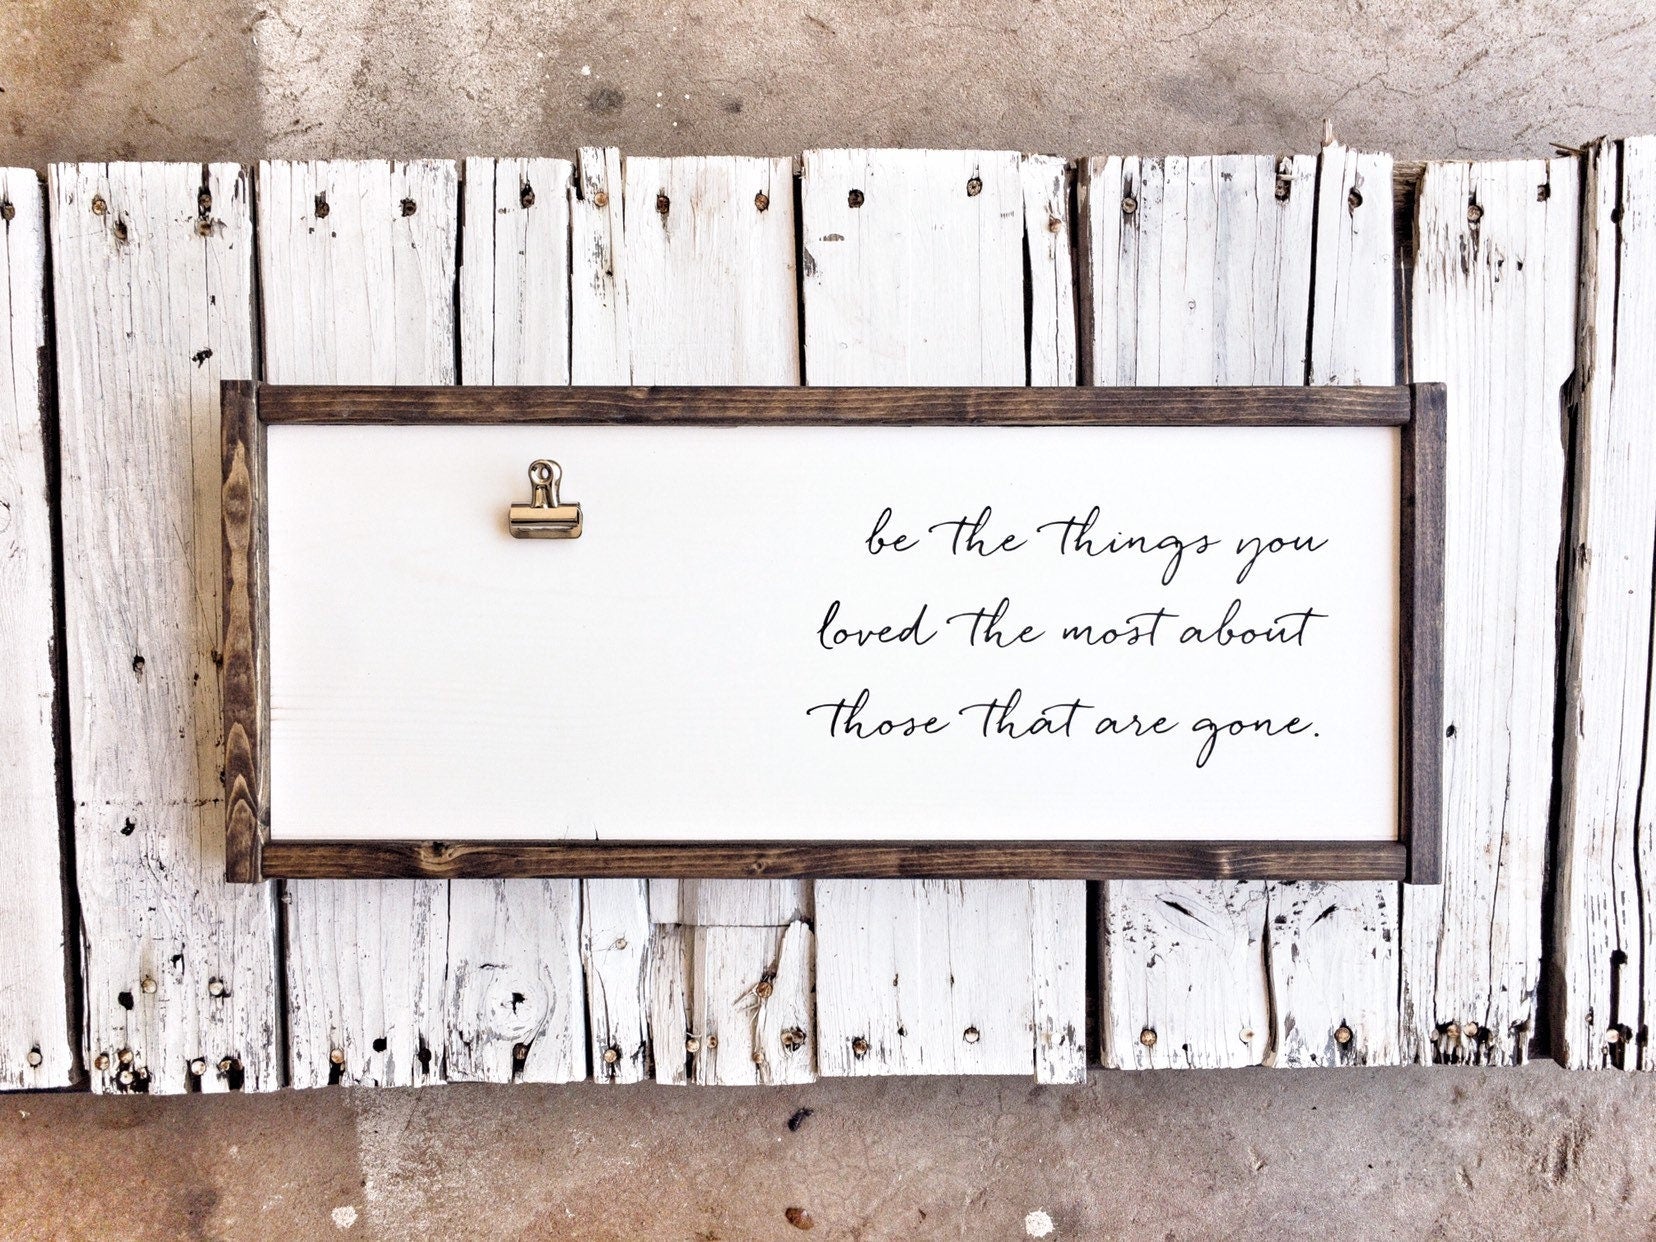 be the things you
loved the most about
those that are gone.